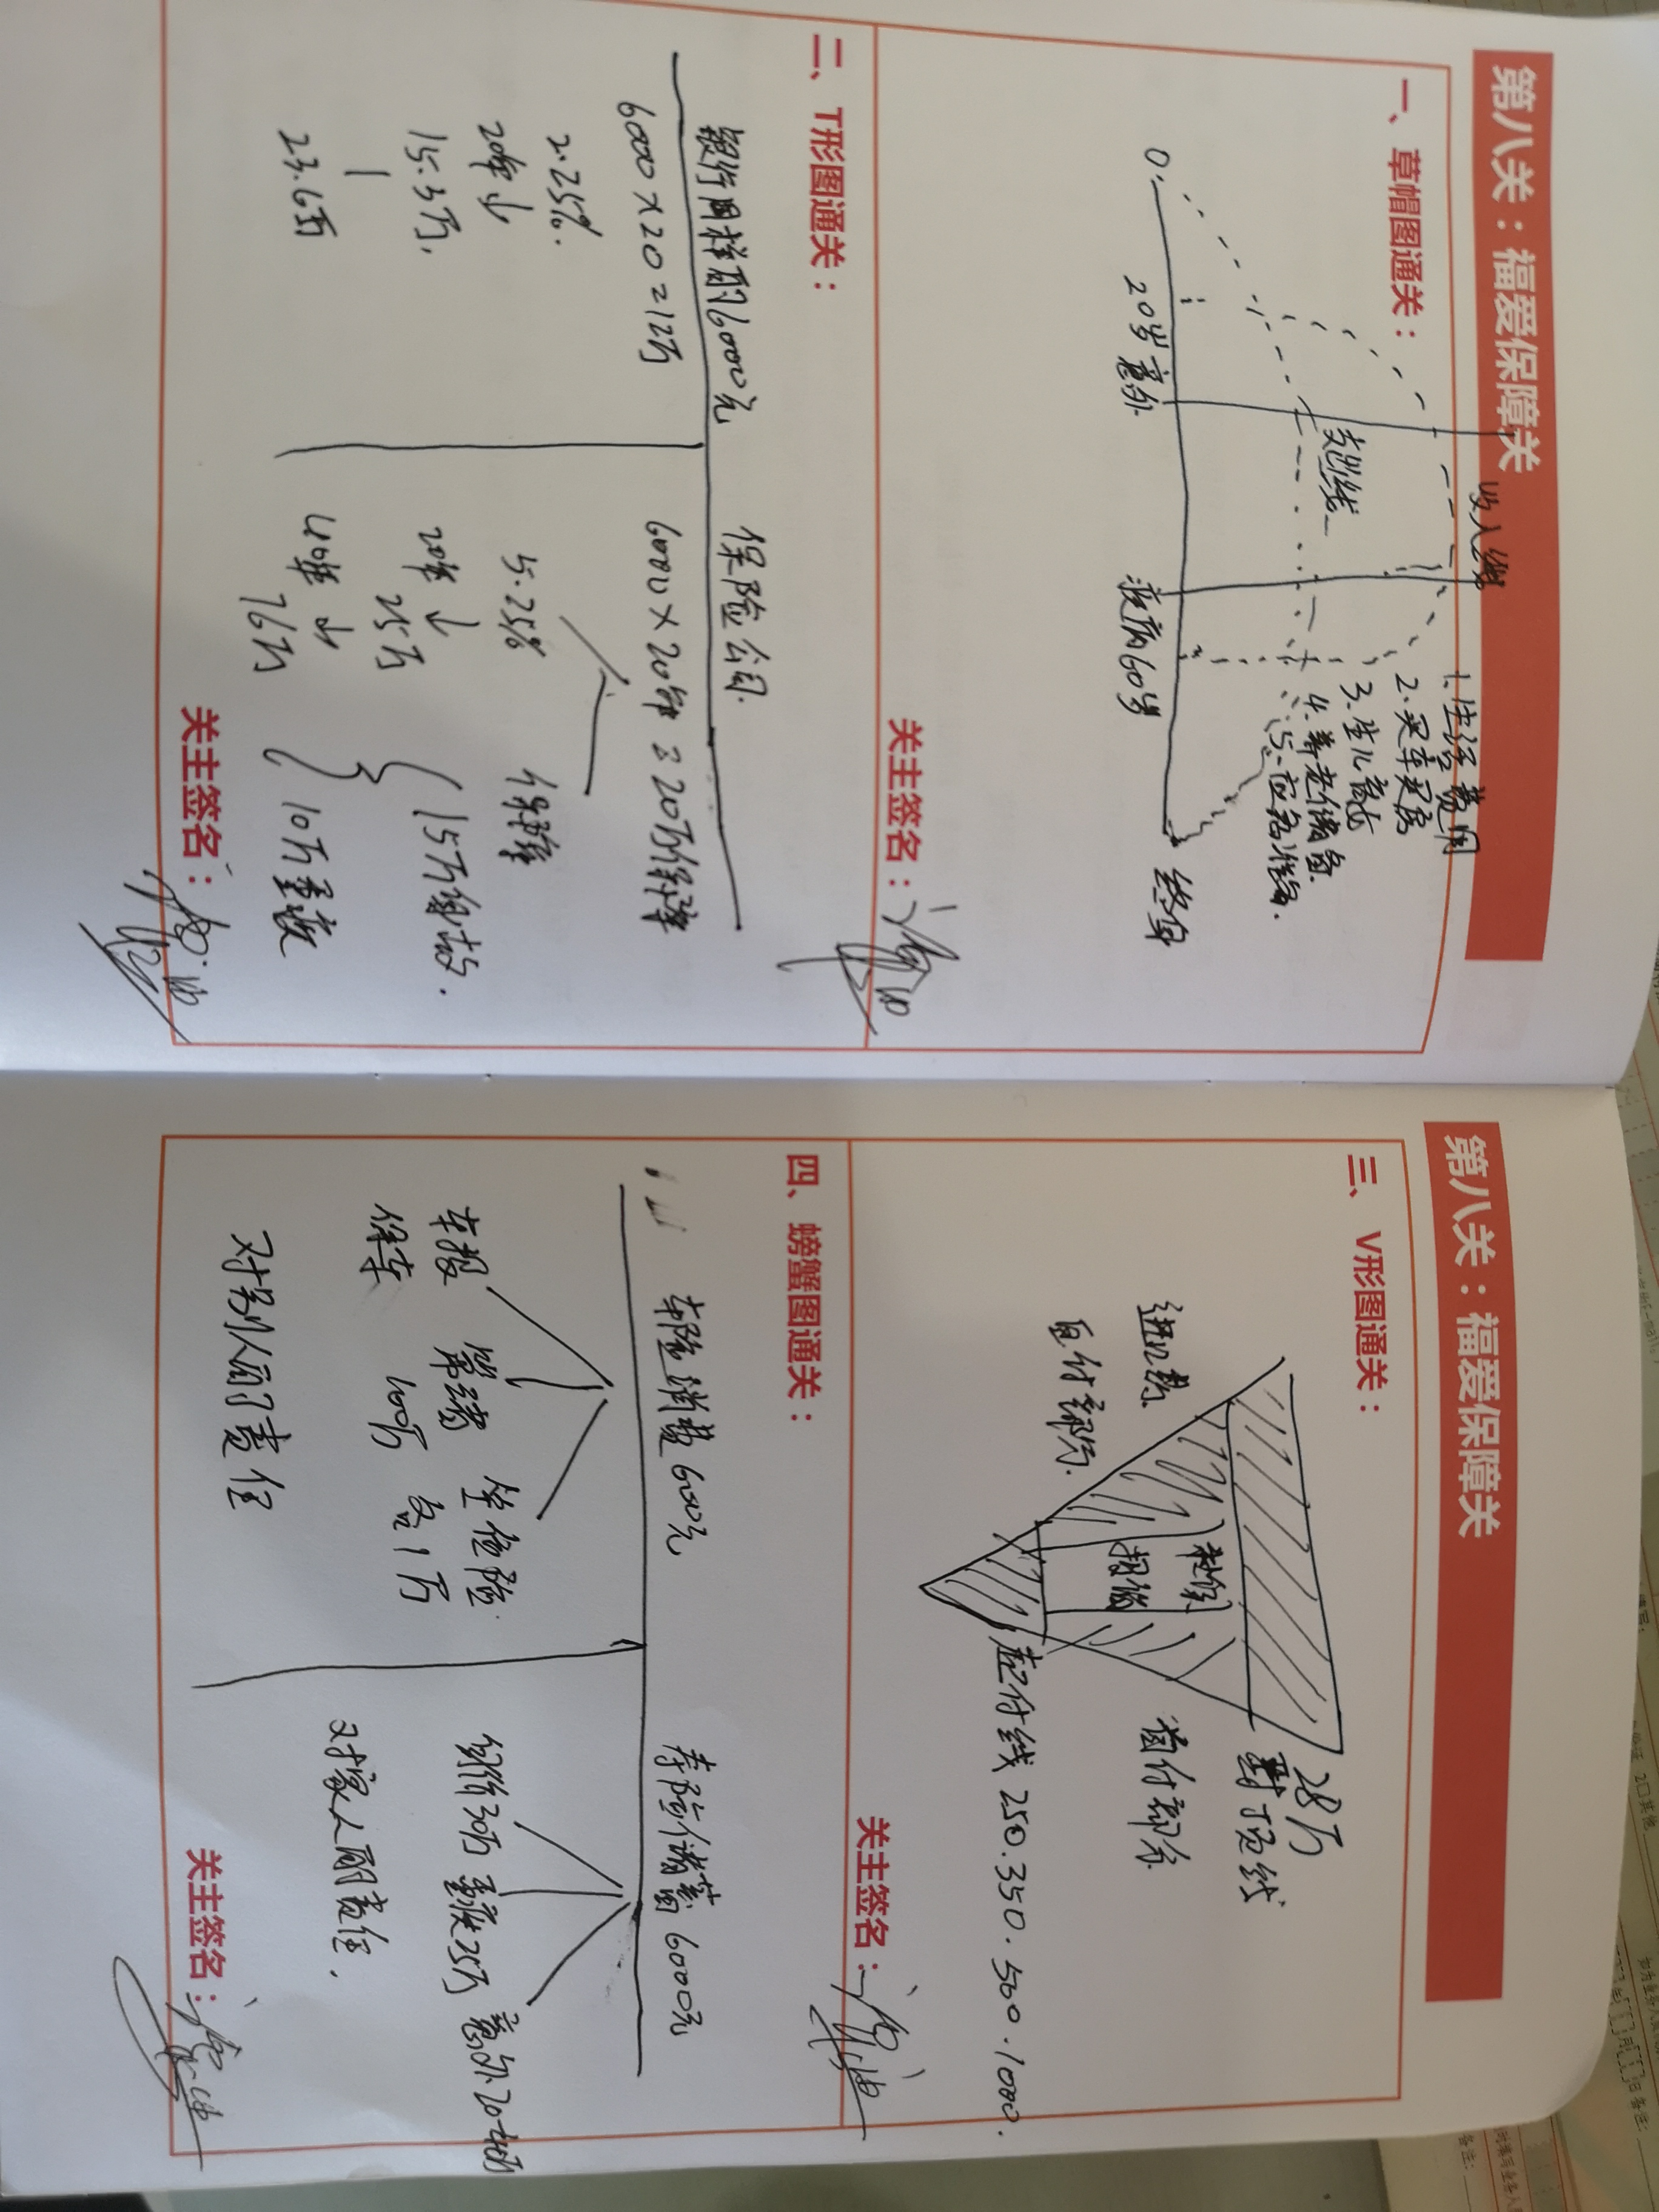 第八关：福爱保障关
一、草帽图通关：
收入线
支出线
1.生活费用
2.买车买房
3.生儿育女
4.养老储备
5.应急准备.
0.
20岁
意外
疾病
60岁
终身
关主签名：
二、T形图通关：
银行同样的6000元
保险公司.
6000×20=12万
6000×20年=20万保障
2.25%.
5.25%
保障
20年
15.3万.
20年
25万
15万身故.
23.6万
40年
76万
10万重疾
关主签名：
第八关：福爱保障关
三、V形图通关：
28万
封顶线
进口药
自付部分.
社保
报销
自付部分
起付线 250.350.500.1000.
关主签名：
四、螃蟹图通关：
车险消费6000元
寿险储蓄6000元
车损
第三者
座位险
保车
100万
各1万
身价30万
重疾25万
意外20-40万
对别人的责任
对家人的责任.
关主签名：